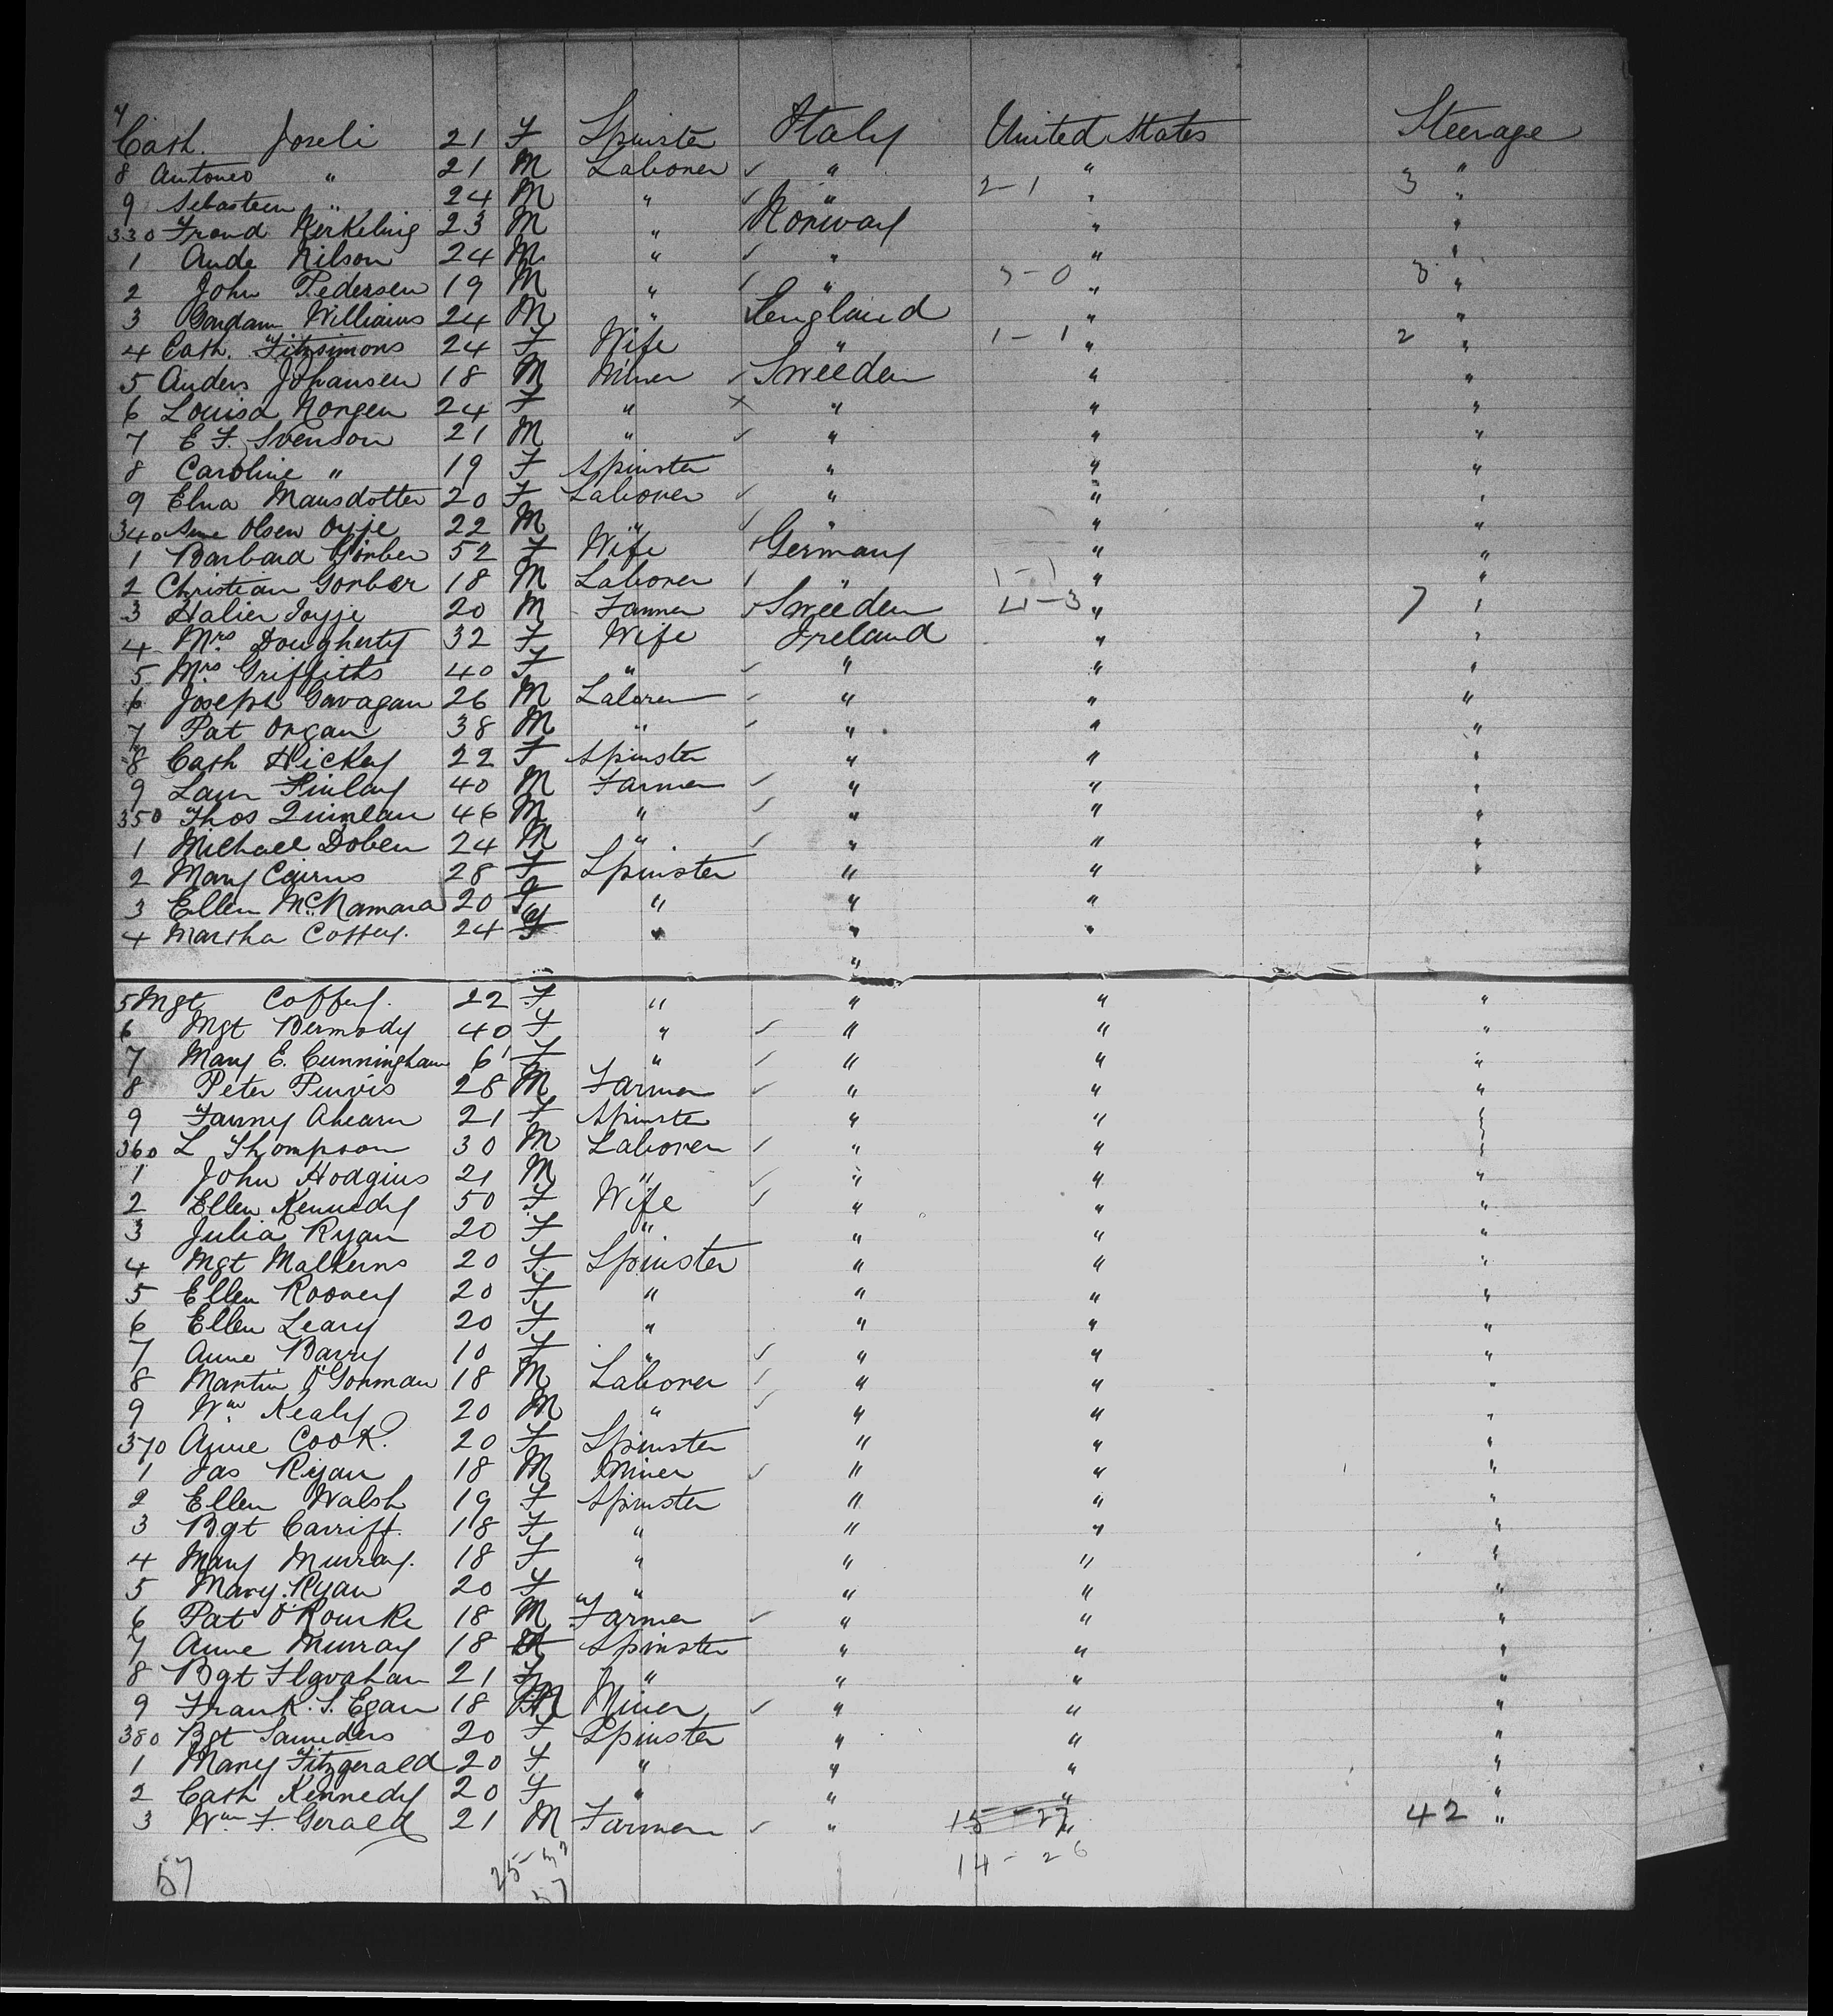 7 Cath. Joseli 21 F Spinster Italy United States Steerage
8 Antonio " 21 M Laborer ✓ " " "
9 Sebastien " 24 M " ✓ " 2-1 " 3 "
330 Frand Kerkeling 23 M " Norway " "
1 Aude Nilson 24 M " ✓ " " "
2 John Pedersen 19 M " ✓ " 3-0 " 3 "
3 Williams 24 M " England " "
4 Cath. Fitzsimons 24 F Wife " 1-1 " 2 "
5 Anders Johansen 18 M Miner ✓ Sweeden " "
6 Louisa Norgen 24 F " x " " "
7 E F. Svenson 21 M " ✓ " " "
8 Caroline " 19 F Spinster " " "
9 Elna Mansdotter 20 F Laborer ✓ " " "
340 Olsen 22 M " ✓ " " "
1 Barbara Gorber 52 F Wife Germany " "
2 Christian Gorber 18 M Laborer ✓ " 1-1 " "
3 Halier 20 M Farmer Sweeden 4-3 " 7 "
4 Mrs Dougherty 32 F Wife Ireland " "
5 Mrs Griffiths 40 F " ✓ " " "
6 Joseph Gavagan 26 M Laborer ✓ " " "
7 Pat Organ 38 M " ✓ " " "
8 Cath Hickey 22 F Spinster " " "
9 Laur Finlay 40 M Farmer ✓ " " "
350 Thos Quinlan 46 M " ✓ " " "
1 Michael Doben 24 M " ✓ " " "
2 Mary Cairns 28 F Spinster " " "
3 Ellen McNamara 20 F " " "
4 Martha Coffey. 24 F " " "
"
5 Mgt Coffey. 22 F " " " "
6 Mgt Dermody 40 F " ✓ " " "
7 Mary E. Cunningham 6 F " ✓ " " "
8 Peter Purvis 28 M Farmer ✓ " " "
9 Fanny Ahearn 21 F Spinster " " "
360 L Thompson 30 M Laborer ✓ " " "
1 John Hodgins 21 M " ✓ " " "
2 Ellen Kennedy 50 F Wife ✓ " " "
3 Julia Ryan 20 F " " " "
4 Mgt Malkerns 20 F Spinster " " "
5 Ellen Rooney 20 F " " " "
6 Ellen Leary 20 F " " " "
7 Anne Barry 10 F " ✓ " " "
8 Martin O'Gorman 18 M Laborer ✓ " " "
9 Wm Kealy 20 M " ✓ " " "
370 Anne Cook. 20 F Spinster " " "
1 Jas Ryan 18 M Miner ✓ " " "
2 Ellen Walsh 19 F Spinster " " "
3 Bgt Carriff. 18 F " " " "
4 Mary Murray. 18 F " " " "
5 Mary Ryan 20 F " " " "
6 Pat O'Rourke 18 M Farmer ✓ " " "
7 Anne Murray 18 Spinster " " "
8 Bgt Flavahan 21 F " " " "
9 Frank. S. Egan 18 M Miner ✓ " " "
380 Bgt Saunders 20 F Spinster " " "
1 Mary Fitzgerald 20 F " " " "
2 Cath Kennedy 20 F " " " "
3 Wm F. Gerald 21 M Farmer ✓ " 15-27 " 42 "
57 25-32 14-26
57